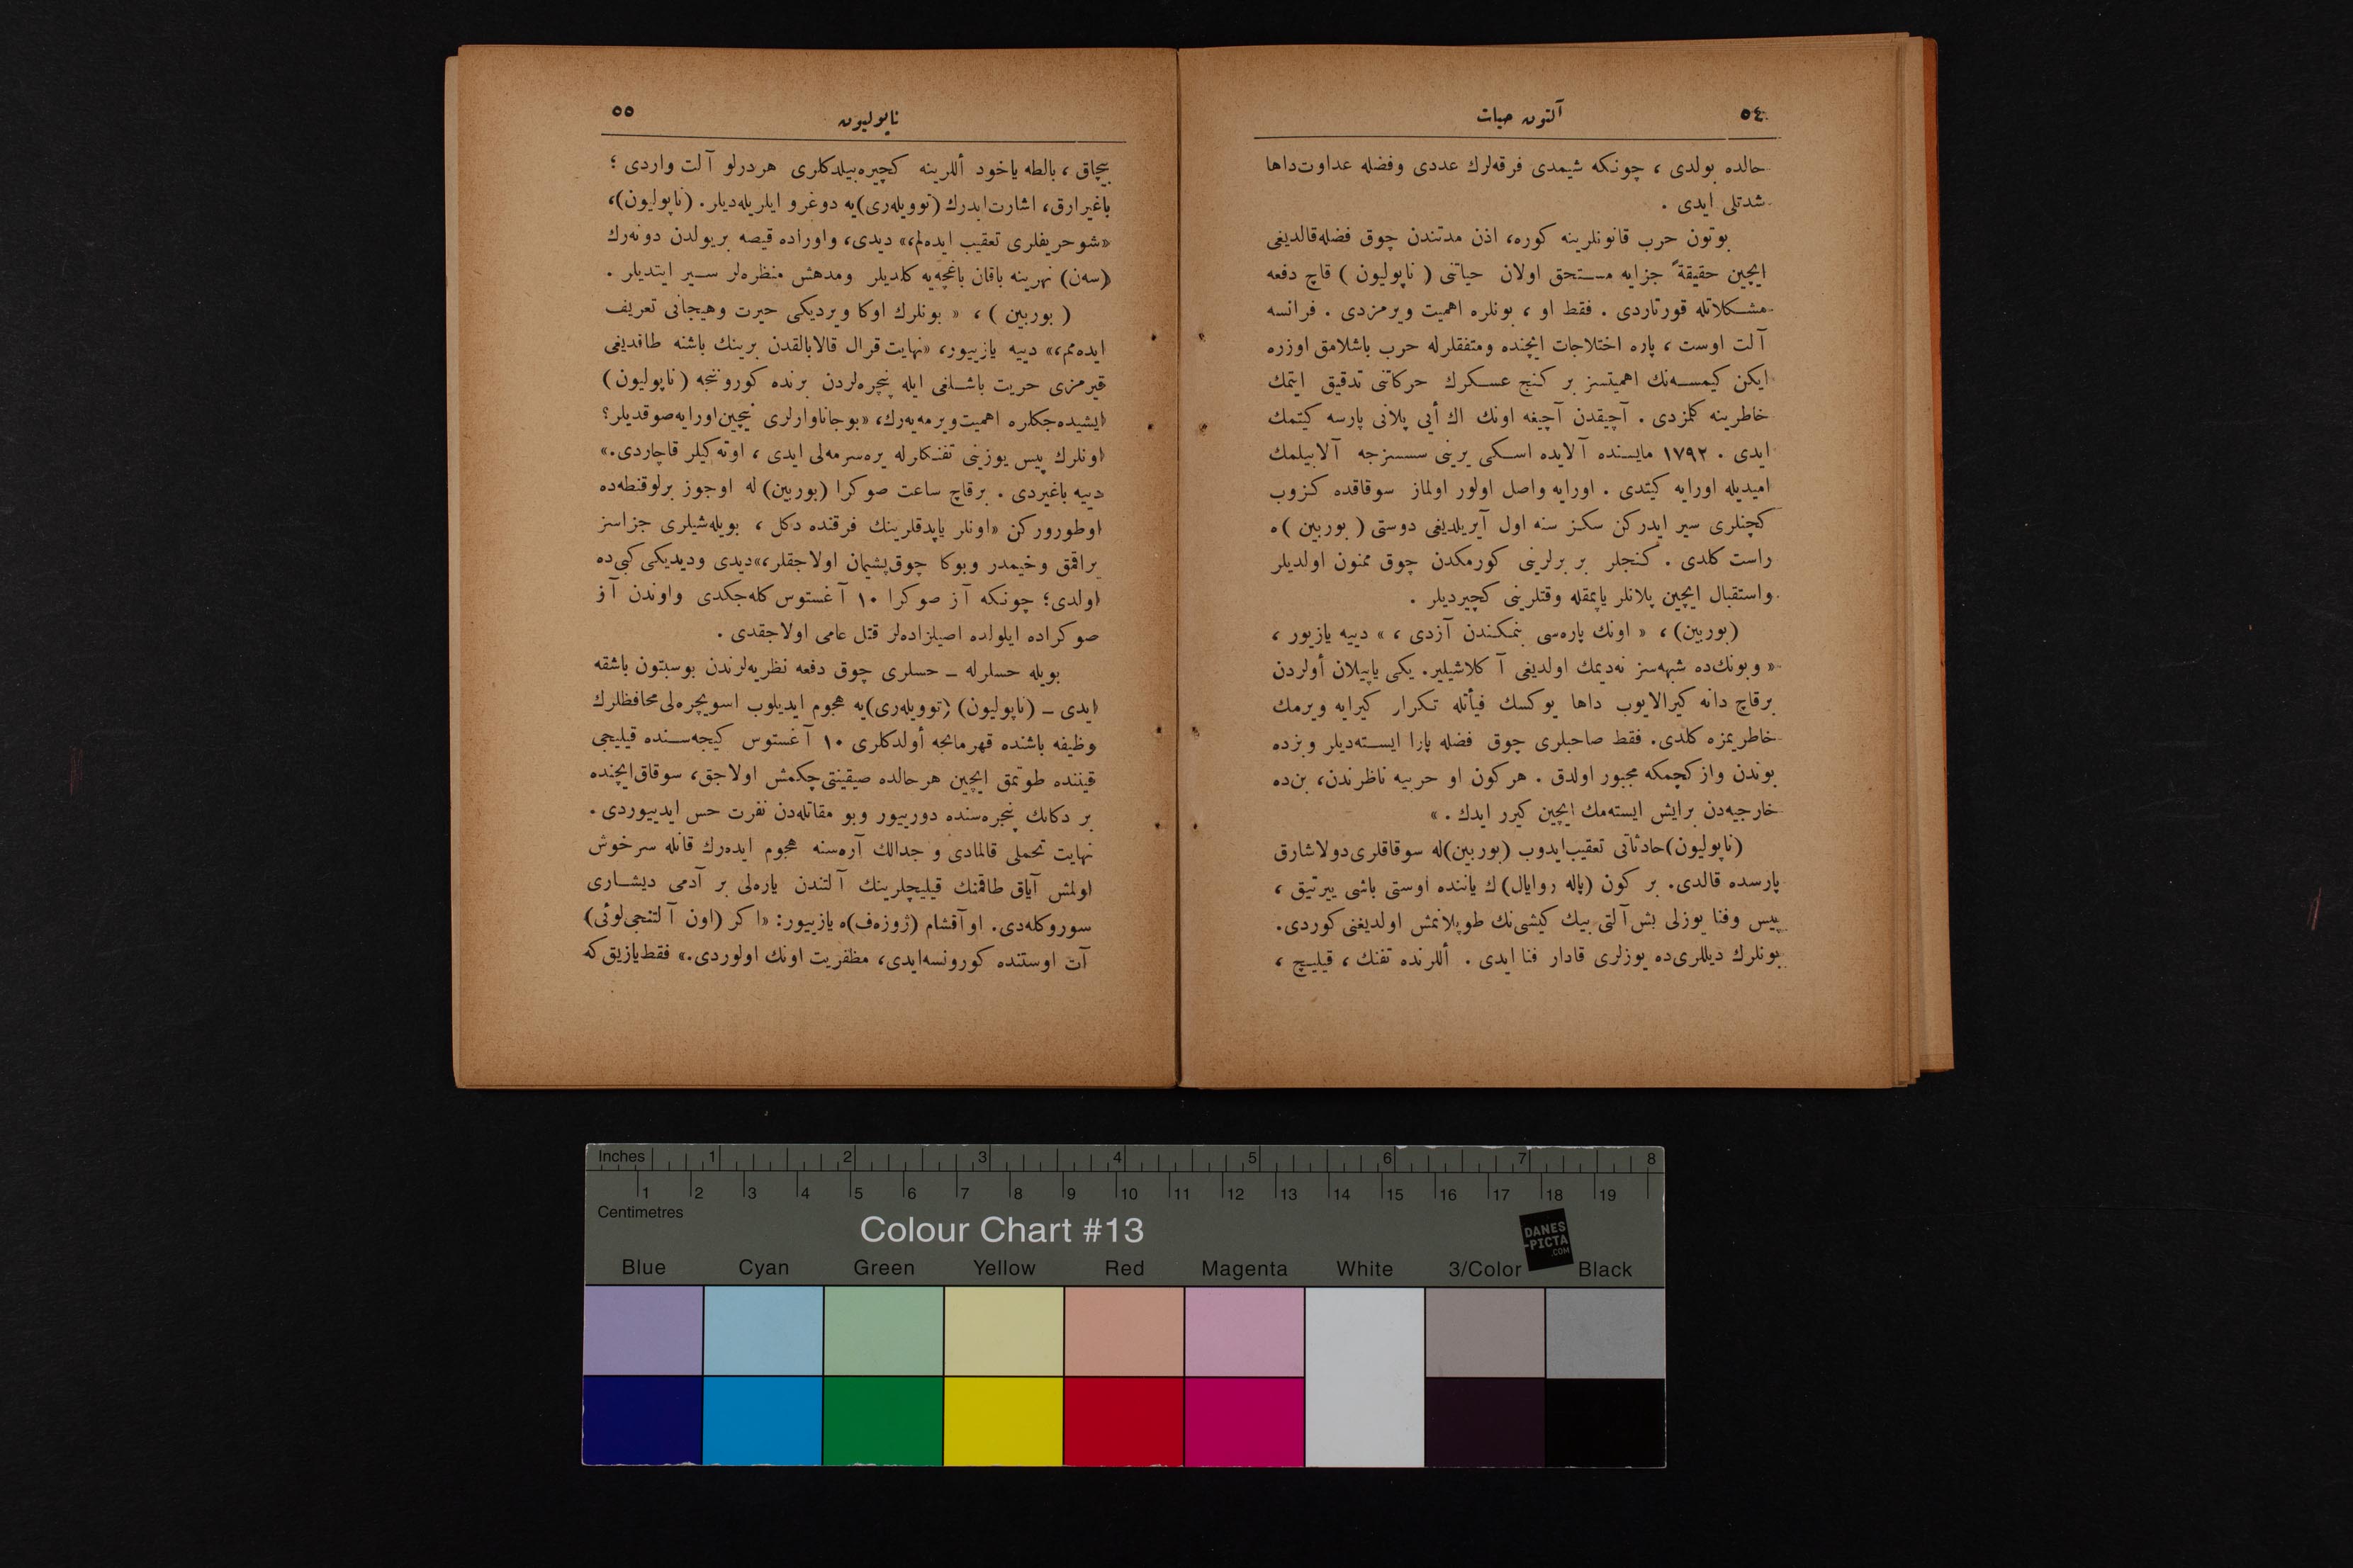 ٥٤
آلتون حیات
حالده بولدی ، چونکه شیمدی فرقه‌لرك عددی وفضله عداوت داها
شدتلی ایدی .
بوتون حرب قانونلرینه کوره، اذن مدتندن چوق فضله قالدیغی
ایچین حقیقةً جزایه مستحق اولان حیاتنی ( ناپولیون ) قاچ دفعه
مشکلاتله قورتاردی . فقط او ، بونلره اهمیت ویرمزدی . فرانسه
آلت اوست ، پاره اختلاجات ایچنده ومتفقلرله حرب باشلامق اوزره
ایکن کیمسه‌نك اهمیتسز بر کنج عسکرك حرکاتنی تدقیق ایتمك
خاطرینه کلمزدی . آچیقدن آچیغه اونك اك أیی پلانی پارسه کیتمك
ایدی . ١٧٩٢ مایسنده آلایده اسکی یرینی سسزجه آلابیلمك
امیدیله اورایه کیتدی . اورایه واصل اولور اولماز سوقاقده کزوب
کچنلری سیر ایدرکن سکز سنه اول آیریلدیغی دوستی ( بوریین )ه
راست کلدی . کنجلر بر برلرینی کورمکدن چوق ممنون اولدیلر
واستقبال ایچین پلانلر یاپمقله وقتلرینی کچیردیلر .
(بوریین) ، « اونك پاره‌سی بنمکندن آزدی ، » دییه یازیور ،
« وبونك‌ده شبهه‌سز نه‌دیمك اولدیغی آ کلاشیلیر. یکی یاپیلان أولردن
برقاچ دانه کیرالایوب داها یوکسك فیأتله تکرار کیرایه ویرمك
خاطریمزه کلدی. فقط صاحبلری چوق فضله پارا ایسته‌دیلر وبزده
بوندن وازکچمکه مجبور اولدق . هرکون او حربیه ناظرندن، بن‌ده
خارجیه‌دن برایش ایسته‌مك ایچین کیرر ایدك . »
(ناپولیون) حادثاتی تعقیب ایدوب (بوریین)له سوقاقلری دولاشارق
پارسده قالدی. بر کون (پاله روایال) ك یاننده اوستی باشی ییرتیق ،
پیس وفنا یوزلی بش آلتی بیك کیشی‌نك طوپلانمش اولدیغنی کوردی.
بونلرك دیللری‌ده یوزلری قادار فنا ایدی . أللرنده تفنك ، قیلیچ ،
ناپولیون
٥٥
بیچاق ، بالطه یاخود أللرینه کچیره‌بیلدکلری هردرلو آلت واردی ؛
باغیرارق، اشارت ایدرك (توویله‌ری)یه دوغرو ایلریله‌دیلر. (ناپولیون)،
«شو حریفلری تعقیب ایده‌لم،» دیدی، واوراده قیصه بریولدن دونه‌رك
(سه‌ن) نهرینه باقان باغچه‌یه کلدیلر ومدهش منظره‌لر سیر ایتدیلر .
( بوریین ) ، « بونلرك اوکا ویردیکی حیرت وهیجانی تعریف
ایده‌مم،» دییه یازییور، «نهایت قرال قالابالقدن برینك باشنه طاقدیغی
قیرمزی حریت باشلغی ایله پنچره‌لردن برنده کوروننجه (ناپولیون)
ایشیده‌جکلره اهمیت ویرمه‌یه‌رك، «بوجاناوارلری نیچین اورایه صوقدیلر؟
اونلرك پیس یوزینی تفنکلرله یره سرمه‌لی ایدی ، اوته‌کیلر قاچاردی.»
دییه باغیردی . برقاچ ساعت صوکرا (بوریین) له اوجوز برلوقنطه‌ده
اوطورورکن «اونلر یاپدقلرینك فرقنده دکل ، بویله شیلری جزاسز
براقمق وخیمدر وبوکا چوق پشیمان اولاجقلر،» دیدی ودیدیکی کبی‌ده
اولدی؛ چونکه آز صوکرا ١٠ آغستوس کله‌جکدی واوندن آز
صوکراده ایلولده اصیلزاده‌لر قتل عامی اولاجقدی .
بویله حسلرله ـ حسلری چوق دفعه نظریه‌لرندن بوسبتون باشقه
ایدی ـ (ناپولیون) (توویله‌ری)یه هجوم ایدیلوب اسویچره‌لی محافظلرك
وظیفه باشنده قهرمانجه أولدکلری ١٠ آغستوس کیجه‌سنده قیلیجی
قیننده طوتمق ایچین هرحالده صیقینتی چکمش اولاجق، سوقاق ایچنده
بر دکانك پنجره‌سنده دورییور وبو مقاتله‌دن نفرت حس ایدییوردی .
نهایت تحملی قالمادی و جدالك آره‌سنه هجوم ایده‌رك قانله سرخوش
اولمش آیاق طاقمنك قیلیچلرینك آلتندن یاره‌لی بر آدمی دیشاری
سوروکله‌دی. او آقشام (ژوزه‌ف)ه یازییور: «اکر (اون آلتنجی لوئی)
آت اوستنده کورونسه‌ایدی، مظفریت اونك اولوردی.» فقط یازیق که
Inches 1 2 3 4 5 6 7 8
1 2 3 4 5 6 7 8 9 10 11 12 13 14 15 16 17 18 19
Centimetres
Colour Chart #13
DANES
-PICTA
.COM
Blue Cyan Green Yellow Red Magenta White 3/Color Black